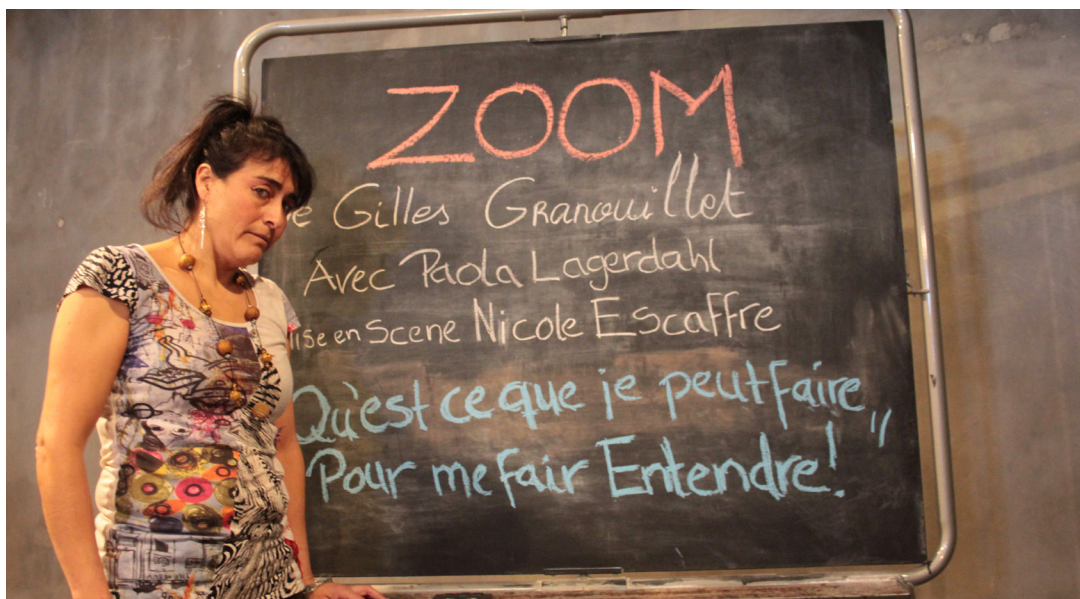 ZOOM
e Gilles Granouillet
Avec Paola Lagerdahl
ise en Scene Nicole Escaffre
Qu'est ce que je peut faire
Pour me fair Entendre! "